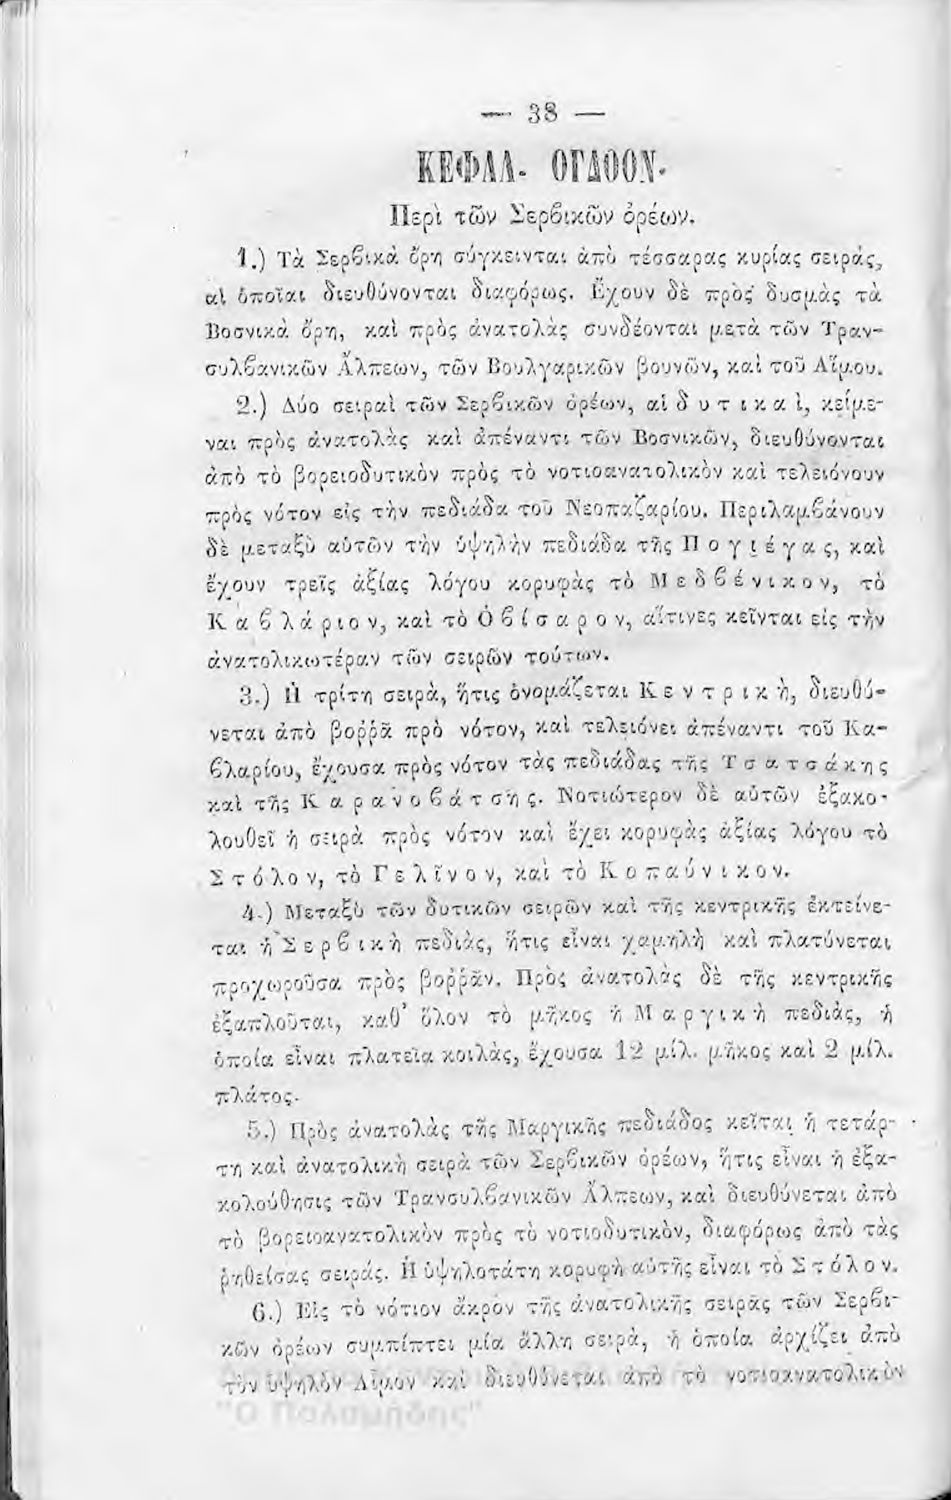 — 38 —
ΚΕΦΑΛ. ΟΓΔΟΟΝ.
Περὶ τῶν Σερβικῶν ὀρέων.
1.) Τὰ Σερβικὰ ὄρη σύγκεινται ἀπὸ τέσσαρας κυρίας σειρὰς,
αἱ ὁποῖαι διευθύνονται διαφόρως. Ἔχουν δὲ πρὸς δυσμὰς τὰ
Βοσνικὰ ὄρη, καὶ πρὸς ἀνατολὰς συνδέονται μετὰ τῶν Τραν-
συλβανικῶν Ἄλπεων, τῶν Βουλγαρικῶν βουνῶν, καὶ τοῦ Αἵμου.
2.) Δύο σειραὶ τῶν Σερβικῶν ὀρέων, αἱ δ υ τ ι κ α ὶ, κείμε-
ναι πρὸς ἀνατολὰς καὶ ἀπέναντι τῶν Βοσνικῶν, διευθύνονται
ἀπὸ τὸ βορειοδυτικὸν πρὸς τὸ νοτιοανατολικὸν καὶ τελειόνουν
πρὸς νότον εἰς τὴν πεδιάδα τοῦ Νεοπαζαρίου. Περιλαμβάνουν
δὲ μεταξὺ αὐτῶν τὴν ὑψηλὴν πεδιάδα τῆς Π ο γ ι έ γ α ς, καὶ
ἔχουν τρεῖς ἀξίας λόγου κορυφὰς τὸ Μ ε δ β έ ν ι κ ο ν, τὸ
Κ α β λ ά ρ ι ο ν, καὶ τὸ Ὀ β ί σ α ρ ο ν, αἵτινες κεῖνται εἰς τὴν
ἀνατολικωτέραν τῶν σειρῶν τούτων.
3.) Ἡ τρίτη σειρὰ, ἥτις ὀνομάζεται Κ ε ν τ ρ ι κ ὴ, διευθύ-
νεται ἀπὸ βοῤῥᾶ πρὸ νότον, καὶ τελειόνει ἀπέναντι τοῦ Κα-
βλαρίου, ἔχουσα πρὸς νότον τὰς πεδιάδας τῆς Τ σ α τ σ ά κ η ς
καὶ τῆς Κ α ρ α ν ο β ά τ σ η ς. Νοτιώτερον δὲ αὐτῶν ἐξακο-
λουθεῖ ἡ σειρὰ πρὸς νότον καὶ ἔχει κορυφὰς ἀξίας λόγου τὸ
Σ τ ό λ ο ν, τὸ Γ ε λ ῖ ν ο ν, καὶ τὸ Κ ο π α ύ ν ι κ ο ν.
4.) Μεταξὺ τῶν δυτικῶν σειρῶν καὶ τῆς κεντρικῆς ἐκτείνε-
ται ἡ Σ ε ρ β ι κ ὴ πεδιὰς, ἥτις εἶναι χαμηλὴ καὶ πλατύνεται
προχωροῦσα πρὸς βοῤῥᾶν. Πρὸς ἀνατολὰς δὲ τῆς κεντρικῆς
ἐξαπλοῦται, καθ’ ὅλον τὸ μῆκος ἡ Μ α ρ γ ι κ ὴ πεδιὰς, ἡ
ὁποία εἶναι πλατεῖα κοιλὰς, ἔχουσα 12 μίλ. μῆκος καὶ 2 μίλ.
πλάτος.
5.) Πρὸς ἀνατολὰς τῆς Μαργικῆς πεδιάδος κεῖται ἡ τετάρ-
τη καὶ ἀνατολικὴ σειρὰ τῶν Σερβικῶν ὀρέων, ἥτις εἶναι ἡ ἐξα-
κολούθησις τῶν Τρανσυλβανικῶν Ἄλπεων, καὶ διευθύνεται ἀπὸ
τὸ βορειοανατολικὸν πρὸς τὸ νοτιοδυτικὸν, διαφόρως ἀπὸ τὰς
ῥηθείσας σειράς. Ἡ ὑψηλοτάτη κορυφὴ αὐτῆς εἶναι τὸ Σ τ ό λ ο ν.
6.) Εἰς τὸ νότιον ἄκρον τῆς ἀνατολικῆς σειρᾶς τῶν Σερβι-
κῶν ὀρέων συμπίπτει μία ἄλλη σειρὰ, ἡ ὁποία ἀρχίζει ἀπὸ
τὸν ὑψηλὸν Αἷμον καὶ διευθύνεται ἀπὸ τὸ νοτιοανατολικὸν
"Ο Παλαμήδης"